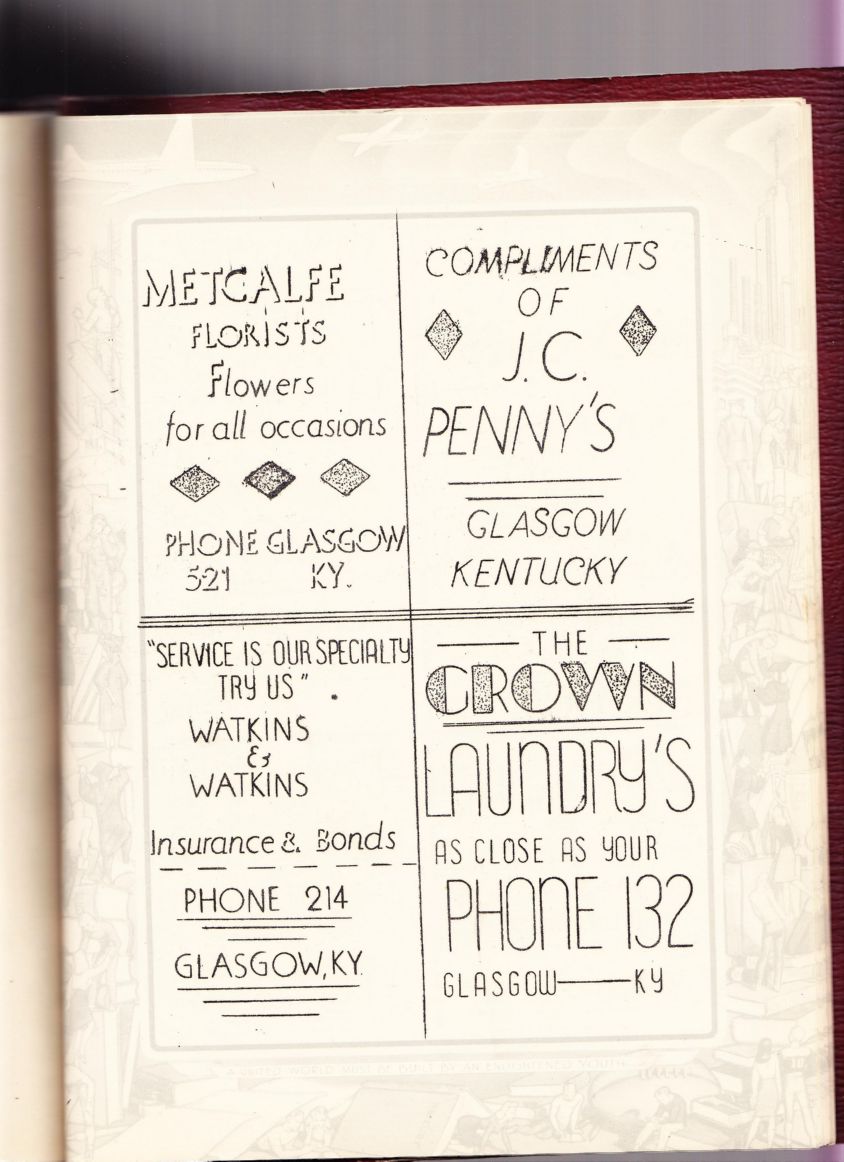 METCALFE
FLORISTS
Flowers
for all occasions
PHONE GLASGOW
521 KY.
COMPLIMENTS
OF
J.C.
PENNY'S
GLASGOW
KENTUCKY
"SERVICE IS OUR SPECIALTY
TRY US".
WATKINS
&
WATKINS
Insurance & Bonds
PHONE 214
GLASGOW, KY.
THE
CROWN
LAUNDRY'S
AS CLOSE AS YOUR
PHONE 132
GLASGOW—KY
A UNITED WORLD MUST BE BUILT BY AN ENLIGHTENED YOUTH